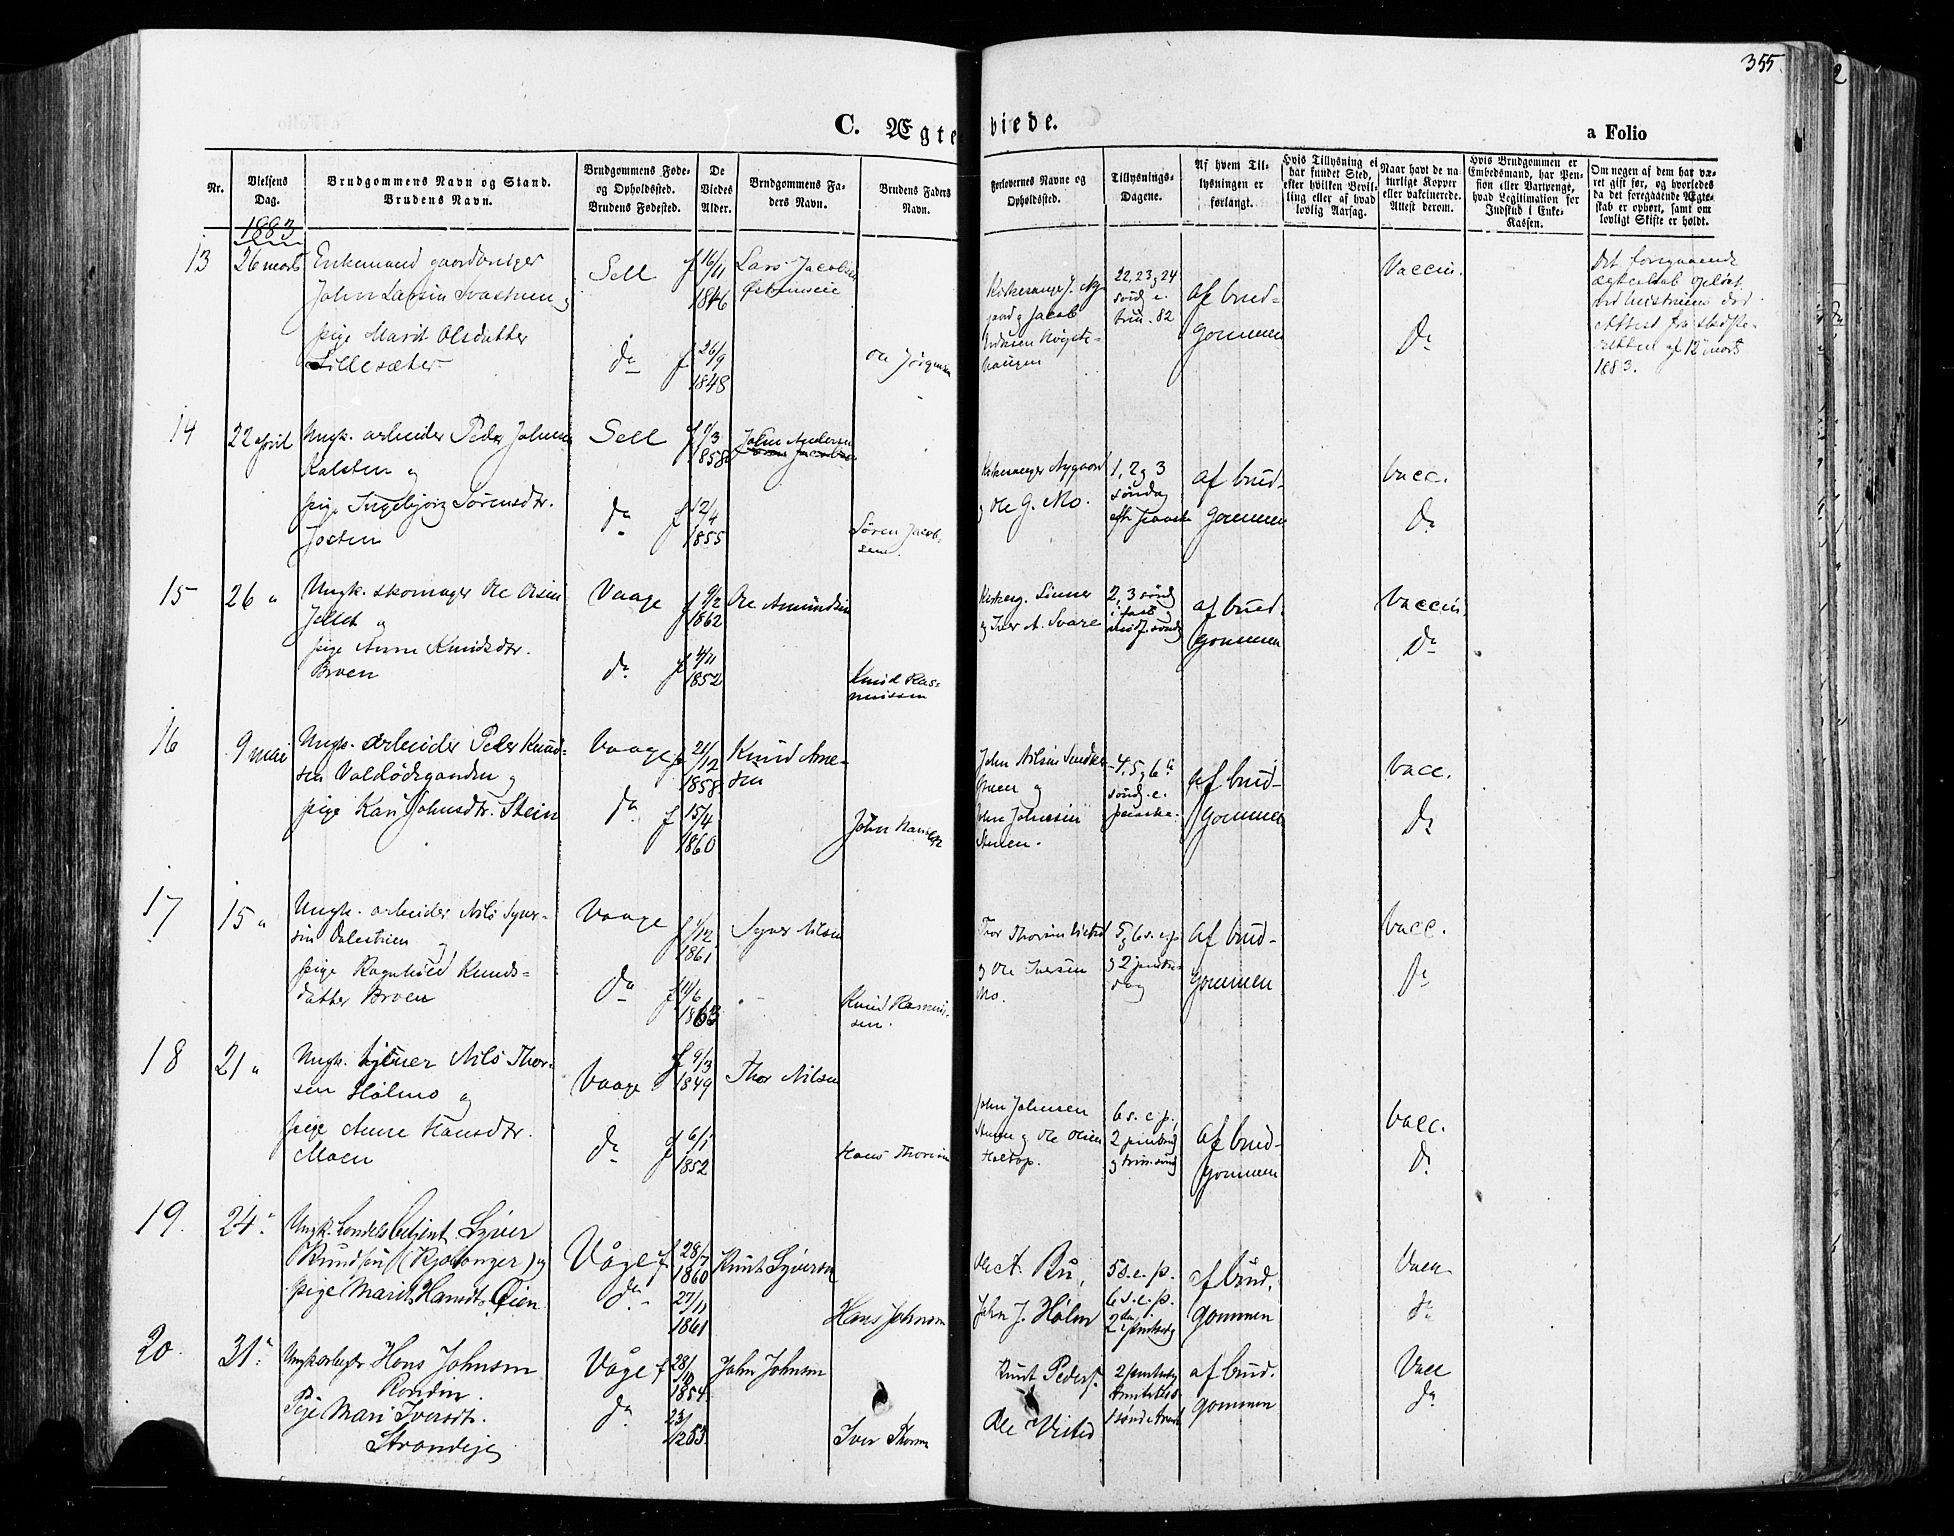 355
C. Ægteviede.
a Folio
Nr.
Vielsens Dag.
Brudgommens Navn og Stand.
Brudens Navn.
Brudgommens Føde-
og Opholdsted.
Brudens Fødested.
De
Viedes
Alder.
Brudgommens Fa-
ders Navn.
Brudens Faders
Navn.
Forlovernes Navne og
Opholdssted.
Tillysnings-
Dagene.
Af hvem Til-
lysningen er
forlangt.
Hvis Tillysning ei
har fundet Sted,
efter hvilken Bevil-
ling eller af hvad
lovlig Aarsag.
Naar havt de na-
turlige Kopper
eller vakcinerede.
Attest derom.
Hvis Brudgommen er
Embedsmand, har Pen-
sion eller Vartpenge,
hvad Legitimation for
Indskud i Enke-
Kassen.
Om nogen af dem har væ-
ret gift før, og hvorledes
da det foregaaende Ægte-
skab er ophørt, samt om
lovligt Skifte er holdt.
1883
13
26 marts
Enkemand gaardbruger
John Larsen
pige Marit Olsdatter
Lillesæter
Sell
f 16/11
1846
Lars Jacobsen
do
f 26/9
1848
Ole Jørgensen
Kirkesanger J. Ny-
gaard og Jacob
22, 23 og 24
sønd. e.
trin. 82
af brud-
gommen
Vaccin.
Do
Det foregaaende
ægteskab opløst
ved hustruens død.
Attest fra skifte-
retten af 12 marts
1883.
14
22 april
Ungk. arbeider Peder Johnsen
Kalsten og
pige Ingebjørg Sørensdtr.
Josten
Sell
f 1/3
1858
John Andersen
do
f 12/4
1855
Søren Jacob-
sen.
Kirkesanger Nygaard
og Ole G. Mo.
1, 2 og 3
søndag
eft. paaske
af brud-
gommen
Vacc.
Do
15
26 "
Ungk. skomager Ole Olsen
og
pige Anne Knudsdtr.
Broen
Vaage
f 9/2
1862
Ole Amundsen
do
f 4/11
1852
Knud Ras-
mussen
Kirkesg. Sinner
og Iver A. Svare
2, 3 sønd
i fast og
midf. sønd
af brud-
gommen
Vaccin.
Do
16
9 mai
Ungk. arbeider Peder Knud-
sen og
pige Kari Johnsdtr. Stein
Vaage
f 21/12
1858
Knud Arne-
sen
do
f 15/4
1860
John Hansen
John Nilsen
og
John Johnsen
Stuen.
4, 5 og 6te
sønd. e.
paaske.
af brud-
gommen
Vacc.
Do
17
15 "
Ungk. arbeider Nils Syver-
sen
og
pige Ragnhild Knuds-
datter Broen
Vaage
f 1/12
1861
Syver Nilsen
do
f 11/6
1863
Knud Rasmus-
sen.
Thor Thorsen Visted
og Ole Iversen
Mo.
5 og 6 s. e. p.
og 2 pintse-
dag
af brud-
gommen
Vacc.
Do
18
21 "
Ungk. Nils Thor-
sen Holmo og
pige Anne Hansdtr.
Moen
Vaage
f 9/3
1849
Thor Nilsen
do
f 6/1
1852
Hans Thorsen
John Johnsen
Stuen og Ole Olsen
6 s. e. p.,
2 pintsedg
og trin. sønd
af brud-
gommen
Vacc.
Do
19.
24 "
Ungk. Handelsbetjent Syver
Knudsen og
pige Marit Hansdtr. Øien
Våge
f 28/7
1860
Knut Syversen
do
27/11
1861
Hans Johnsen
Ole A. Bu,
John J. Holm
5 s. e. p.
6 s. e. p.
2den pintsedg
af brud-
gommen
Vacc.
do
20
31 "
Hans Johnsen
Rondin.
Pige Mari Iversdtr.
Våge
f 28/10
1854.
John Johnsen
do
23/12 53.
Iver Thorsen
Knut Peders.
Ole Visted
2 pintsedg
af brud-
gommen
Vacc
do